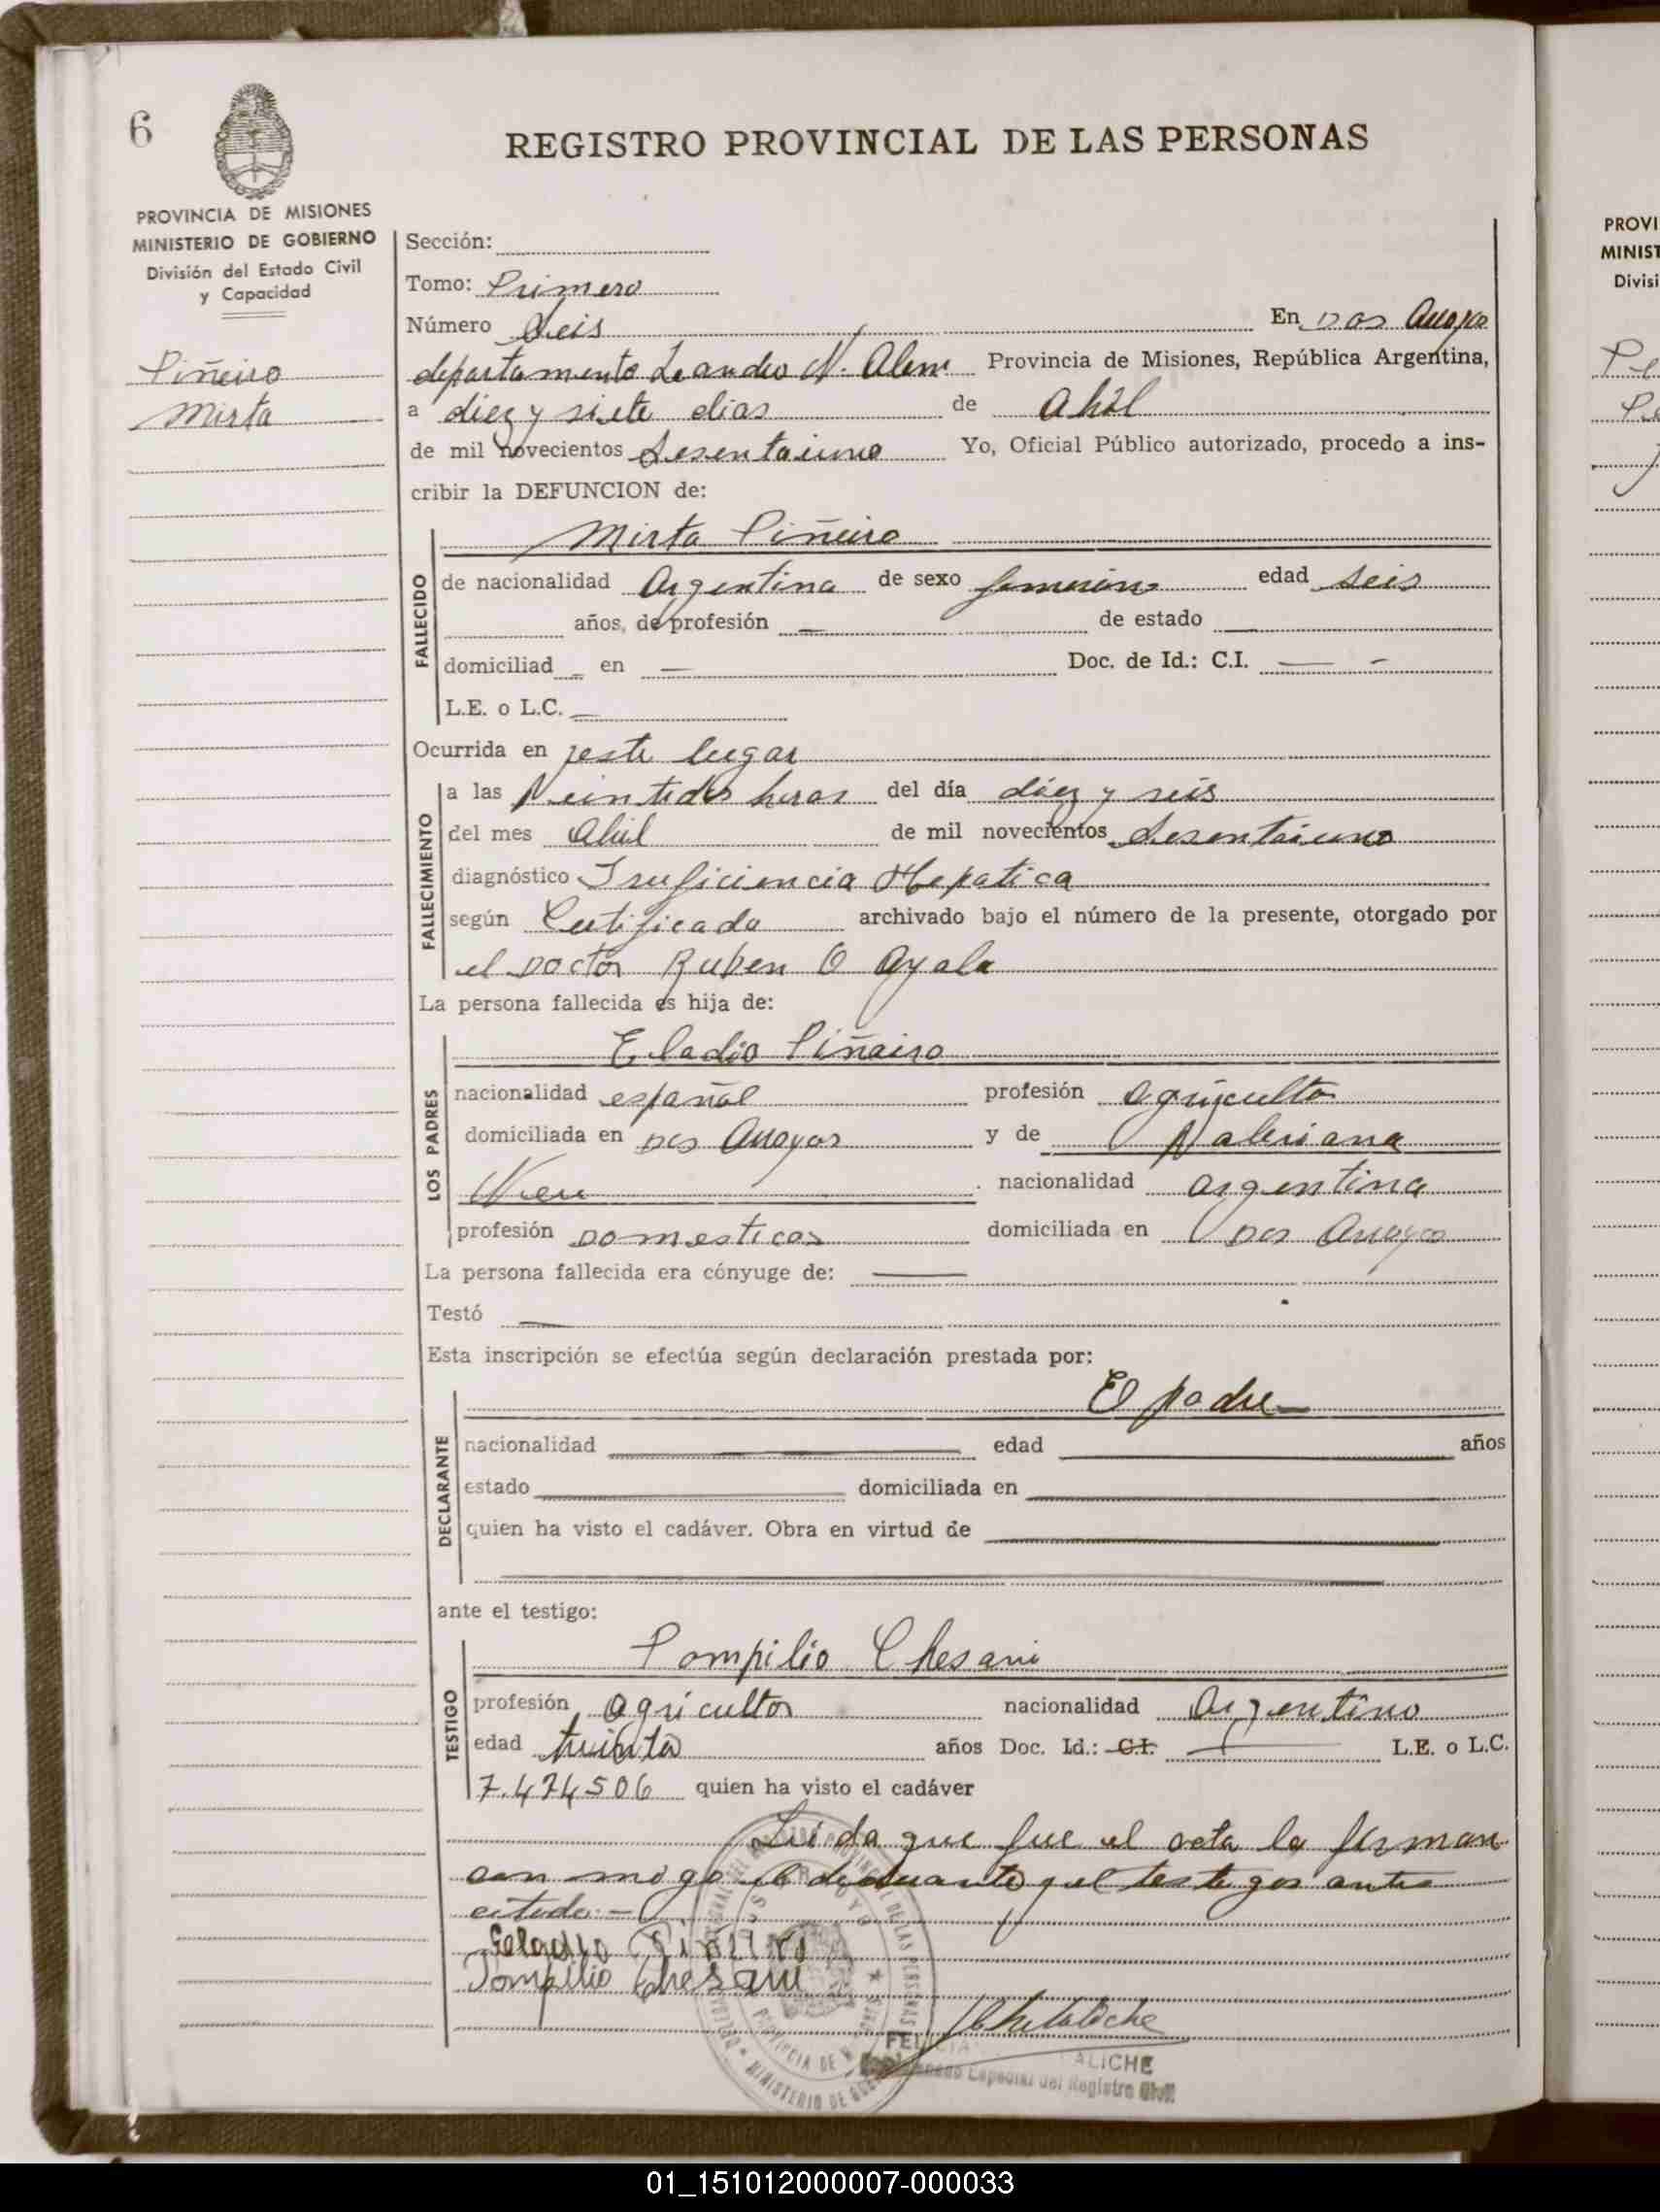 6
REGISTRO PROVINCIAL DE LAS PERSONAS
PROVINCIA DE MISIONES
MINISTERIO DE GOBIERNO
División del Estado Civil
y Capacidad
Piñeiro
Mirta
Sección:
Tomo: Primero
Número Seis En Dos Arroyos
departamento Leandro N. Alem Provincia de Misiones, República Argentina,
a diez y siete dias de Abril
de mil novecientos Sesentaiuno Yo, Oficial Público autorizado, procedo a ins-
cribir la DEFUNCION de:
Mirta Piñeiro
FALLECIDO
de nacionalidad Argentina de sexo femenino edad seis
años, de profesión — de estado
domiciliad – en — Doc. de Id.: C.I. — -
L.E. o L.C. —
Ocurrida en este lugar
FALLECIMIENTO
a las Veintidos horas del día diez y seis
del mes Abril de mil novecientos Sesentaiuno
diagnóstico Insuficiencia Hepatica
según Certificado archivado bajo el número de la presente, otorgado por
el Doctor Ruben O Ayala
La persona fallecida es hija de:
LOS PADRES
Eladio Piñeiro
nacionalidad español profesión agriculto
domiciliada en Dos Arroyos y de Valeriana
nacionalidad argentina
profesión Domesticas domiciliada en Dos Arroyos
La persona fallecida era cónyuge de: —
Testó —
Esta inscripción se efectúa según declaración prestada por:
DECLARANTE
El padre –
nacionalidad edad años
estado domiciliada en
quien ha visto el cadáver. Obra en virtud de
ante el testigo:
TESTIGO
Pompilio Chesani
profesión agricultor nacionalidad Argentino
edad treinta años Doc. Id.: C.I. — L.E. o L.C.
7.474506 quien ha visto el cadáver
Leida que fue el acta la firman
con migo el declarante y el testigos antes
citado: –
Piñeiro
Pompilio Chesani
FELICIA ALICHE
Especial del Registro Civil
PROVI
MINIST
Divisi
01_151012000007-000033